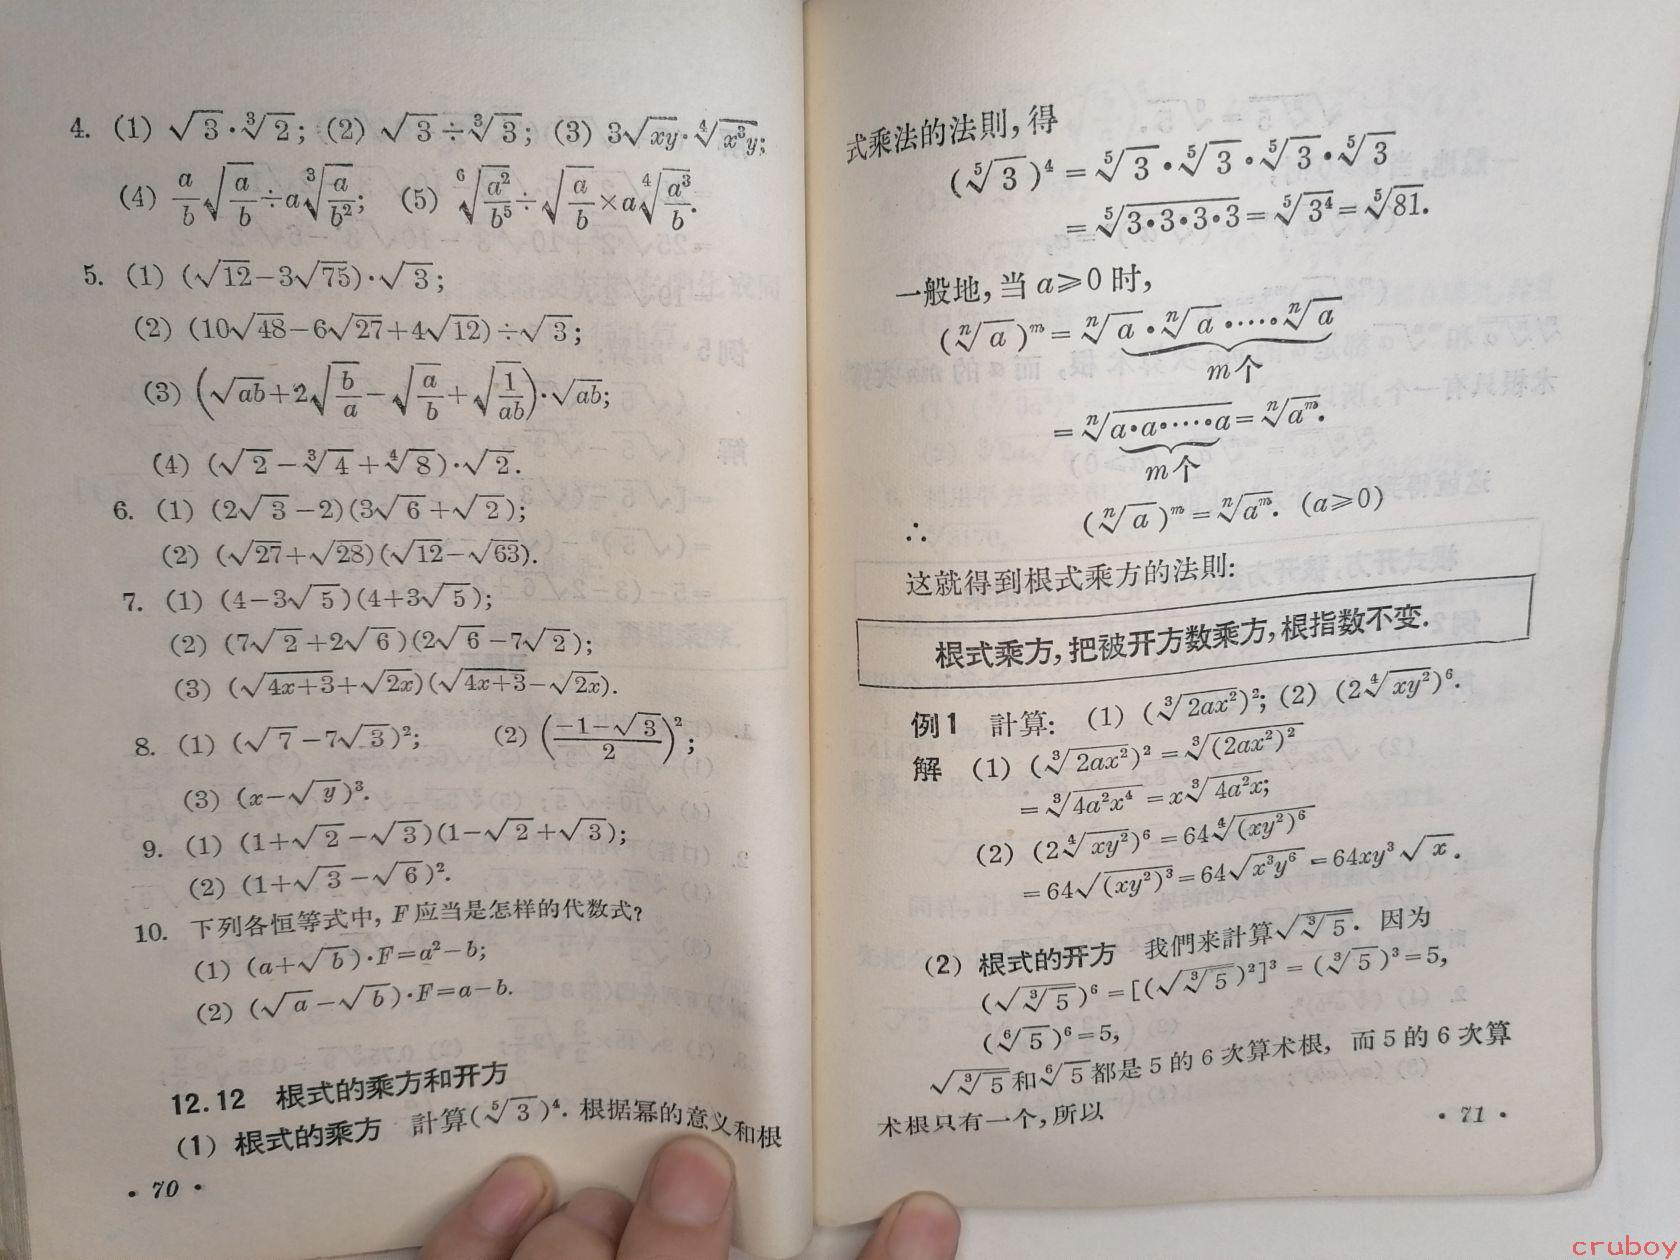 4. (1) √3·∛2; (2) √3÷∛3; (3) 3√(xy)·∜(x³y);
(4) a/b √(a/b)÷a∛(a/b²); (5) ⁶√(a²/b⁵)÷√(a/b)×a∜(a³/b).
5. (1) (√12−3√75)·√3;
(2) (10√48−6√27+4√12)÷√3;
(3) (√(ab)+2√(b/a)−√(a/b)+√(1/(ab)))·√(ab);
(4) (√2−∛4+∜8)·√2.
6. (1) (2√3−2)(3√6+√2);
(2) (√27+√28)(√12−√63).
7. (1) (4−3√5)(4+3√5);
(2) (7√2+2√6)(2√6−7√2);
(3) (√(4x+3)+√(2x))(√(4x+3)−√(2x)).
8. (1) (√7−7√3)²; (2) ((−1−√3)/2)²;
(3) (x−√y)³.
9. (1) (1+√2−√3)(1−√2+√3);
(2) (1+√3−√6)².
10. 下列各恒等式中, F应当是怎样的代数式?
(1) (a+√b)·F=a²−b;
(2) (√a−√b)·F=a−b.
12.12 根式的乘方和开方
(1) 根式的乘方 計算(⁵√3)⁴. 根据幂的意义和根
· 70 ·
式乘法的法則, 得
(⁵√3)⁴=⁵√3·⁵√3·⁵√3·⁵√3
=⁵√(3·3·3·3)=⁵√(3⁴)=⁵√81.
一般地, 当 a⩾0 时,
(ⁿ√a)ᵐ=ⁿ√a·ⁿ√a·····ⁿ√a
m个
=ⁿ√(a·a·····a)=ⁿ√(aᵐ).
m个
∴ (ⁿ√a)ᵐ=ⁿ√(aᵐ). (a⩾0)
这就得到根式乘方的法則:
根式乘方, 把被开方数乘方, 根指数不变.
例1 計算: (1) (∛(2ax²))²; (2) (2∜(xy²))⁶.
解 (1) (∛(2ax²))²=∛((2ax²)²)
=∛(4a²x⁴)=x∛(4a²x);
(2) (2∜(xy²))⁶=64∜((xy²)⁶)
=64√((xy²)³)=64√(x³y⁶)=64xy³√x.
(2) 根式的开方 我們来計算√(∛5). 因为
(√(∛5))⁶=[(√(∛5))²]³=(∛5)³=5,
(⁶√5)⁶=5,
√(∛5)和⁶√5都是5的6次算术根, 而5的6次算
术根只有一个, 所以
· 71 ·
cruboy